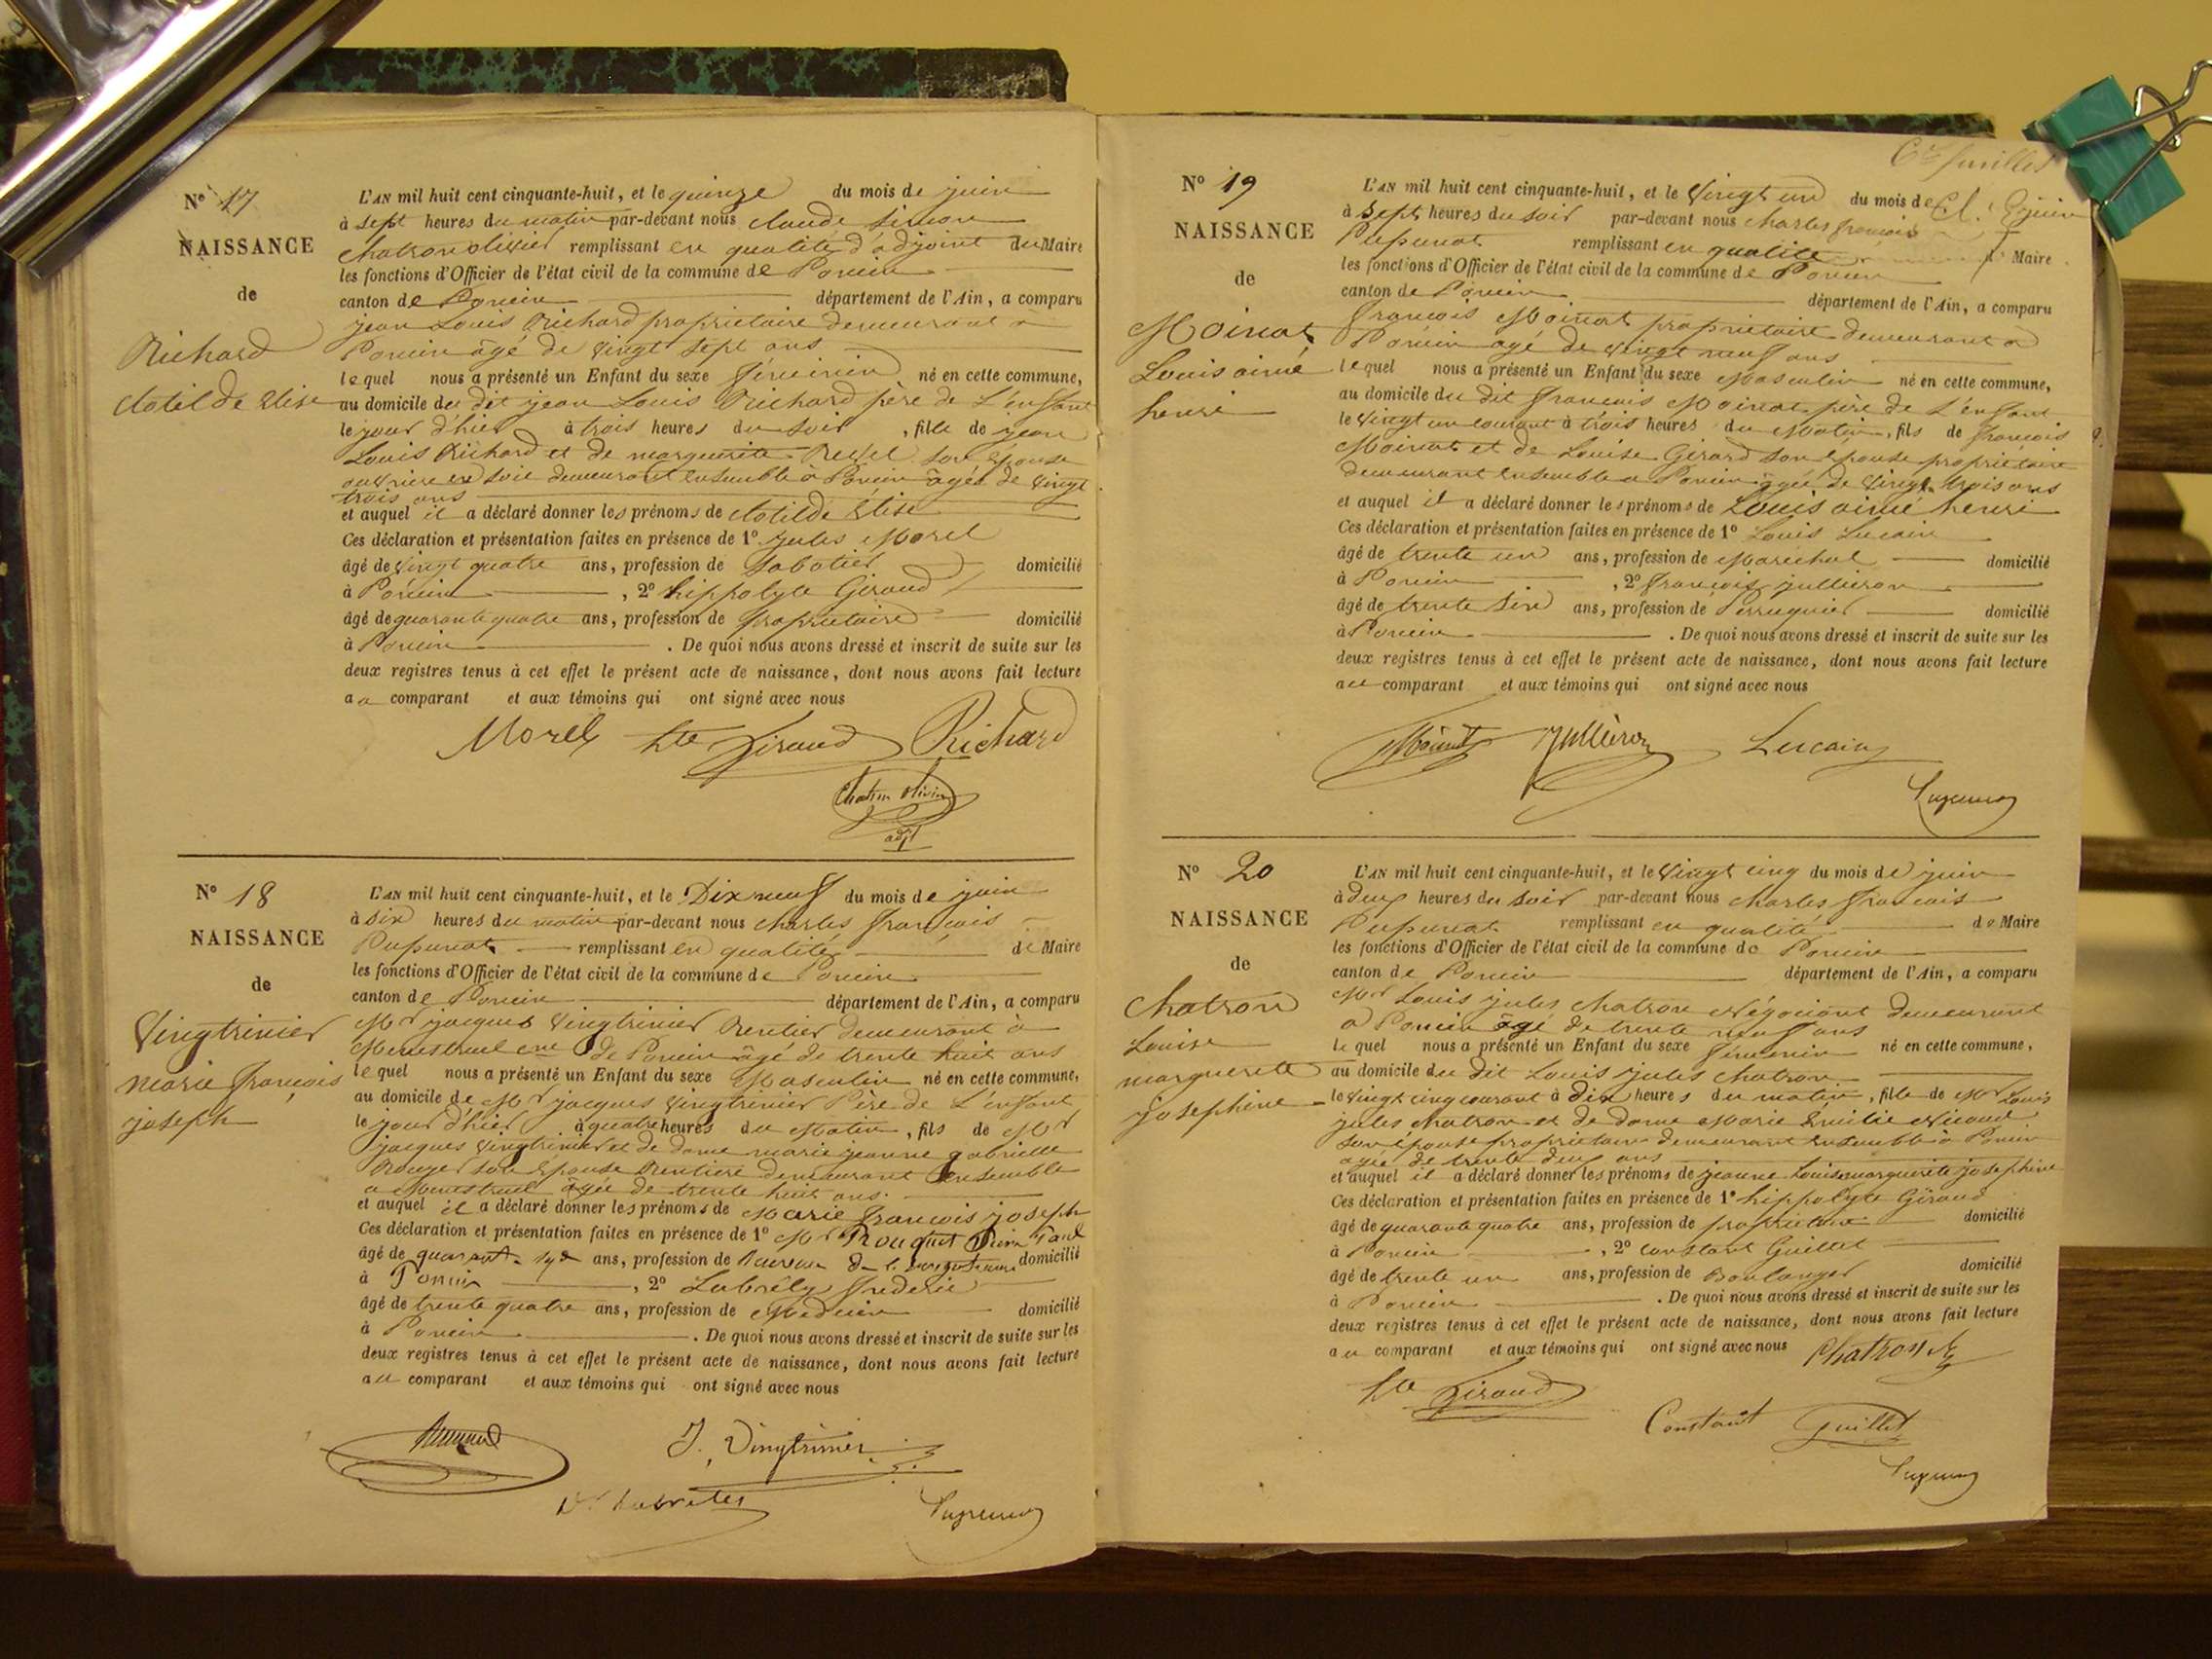 Nº 17
NAISSANCE
de
Richard
Clotilde Elise
L'AN mil huit cent cinquante-huit, et le quinze du mois de juin
à sept heures du matin par-devant nous claude simon
chatron olivier remplissant en qualité d'adjoint du Maire
les fonctions d'Officier de l'état civil de la commune de Poncin
canton de Poncin département de l'Ain, a comparu
jean Louis Richard propriétaire demeurant à
Poncin âgé de vingt sept ans
lequel nous a présenté un Enfant du sexe féminin né en cette commune,
au domicile du dit jean Louis Richard père de L'enfant
le jour d'hier à trois heures du soir, fille de jean
Louis Richard et de marguerite son Epouse
ouvrière en soie demeurant ensemble à Poncin âgée de vingt
trois ans
et auquel il a déclaré donner les prénoms de clotilde Elise
Ces déclaration et présentation faites en présence de 1º jules Morel
âgé de vingt quatre ans, profession de sabotier domicilié
à Poncin, 2º hippolyte Giraud
âgé de quarante quatre ans, profession de propriétaire domicilié
à Poncin. De quoi nous avons dressé et inscrit de suite sur les
deux registres tenus à cet effet le présent acte de naissance, dont nous avons fait lecture
au comparant et aux témoins qui ont signé avec nous
Morel hte Giraud Richard
Chatron olivier
adjt
Nº 18
NAISSANCE
de
Vingtrinier
marie françois
joseph
L'AN mil huit cent cinquante-huit, et le Dix neuf du mois de juin
à six heures du matin par-devant nous charles françois
Pupunat remplissant en qualité de Maire
les fonctions d'Officier de l'état civil de la commune de Poncin
canton de Poncin département de l'Ain, a comparu
Mr jacques Vingtrinier Rentier demeurant à
Menestruel cne de Poncin âgé de trente huit ans
lequel nous a présenté un Enfant du sexe Masculin né en cette commune,
au domicile de Mr jacques Vingtrinier Père de L'enfant
le jour d'hier à quatre heures du Matin, fils de Mr
jacques Vingtrinier et de dame marie jeanne gabrielle
Rouyer son Epouse Rentière demeurant Ensemble
a Menestruel âgée de trente huit ans.
et auquel il a déclaré donner les prénoms de Marie françois joseph
Ces déclaration et présentation faites en présence de 1º Mr Rouquet Paul
âgé de quarante ans, profession de Receveur de l'enregistrement domicilié
à Poncin, 2º Labrély frederic
âgé de trente quatre ans, profession de Médecin domicilié
à Poncin. De quoi nous avons dressé et inscrit de suite sur les
deux registres tenus à cet effet le présent acte de naissance, dont nous avons fait lecture
au comparant et aux témoins qui ont signé avec nous
J. Vingtrinier
Pupunat
Nº 19
NAISSANCE
de
Moinat
Louis aimé
henri
L'AN mil huit cent cinquante-huit, et le Vingt un du mois de juin
à sept heures du soir par-devant nous charles françois
Pupunat remplissant en qualité de Maire
les fonctions d'Officier de l'état civil de la commune de Poncin
canton de Poncin département de l'Ain, a comparu
françois Moinat propriétaire demeurant à
Poncin âgé de vingt neuf ans
lequel nous a présenté un Enfant du sexe Masculin né en cette commune,
au domicile du dit françois Moinat père de L'enfant
le Vingt un courant à trois heures du Matin, fils de françois
Moinat et de Louise Girard son épouse propriétaire
demeurant ensemble a Poncin âgée de vingt trois ans
et auquel il a déclaré donner les prénoms de Louis aimé henri
Ces déclaration et présentation faites en présence de 1º Louis Lucain
âgé de trente un ans, profession de Maréchal domicilié
à Poncin, 2º françois jullieron
âgé de trente six ans, profession de Perruquier domicilié
à Poncin. De quoi nous avons dressé et inscrit de suite sur les
deux registres tenus à cet effet le présent acte de naissance, dont nous avons fait lecture
au comparant et aux témoins qui ont signé avec nous
Moinat Jullieron Lucain
Pupunat
Nº 20
NAISSANCE
de
Chatron
Louise
marguerite
josephine
L'AN mil huit cent cinquante-huit, et le Vingt cinq du mois de juin
à deux heures du soir par-devant nous charles françois
Pupunat remplissant en qualité de Maire
les fonctions d'Officier de l'état civil de la commune de Poncin
canton de Poncin département de l'Ain, a comparu
Mr Louis jules chatron Négociant demeurant
a Poncin âgé de trente neuf ans
lequel nous a présenté un Enfant du sexe féminin né en cette commune,
au domicile du dit Louis jules chatron
le vingt cinq courant à dix heures du matin, fille de Mr Louis
jules chatron et de dame Marie Emilie Nicoud
son épouse propriétaire demeurant ensemble à Poncin
agée de trente deux ans
et auquel il a déclaré donner les prénoms de jeanne Louise marguerite josephine
Ces déclaration et présentation faites en présence de 1º hippolyte Giraud
âgé de quarante quatre ans, profession de propriétaire domicilié
à Poncin, 2º Constant Guillet
âgé de trente un ans, profession de Boulanger domicilié
à Poncin. De quoi nous avons dressé et inscrit de suite sur les
deux registres tenus à cet effet le présent acte de naissance, dont nous avons fait lecture
au comparant et aux témoins qui ont signé avec nous Chatron
hte Giraud
Constant Guillet
Pupunat